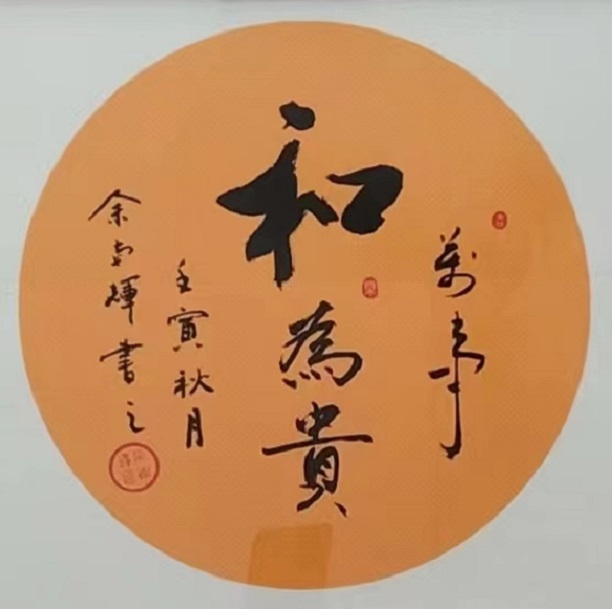 萬事
和為貴
壬寅秋月
余 輝書之